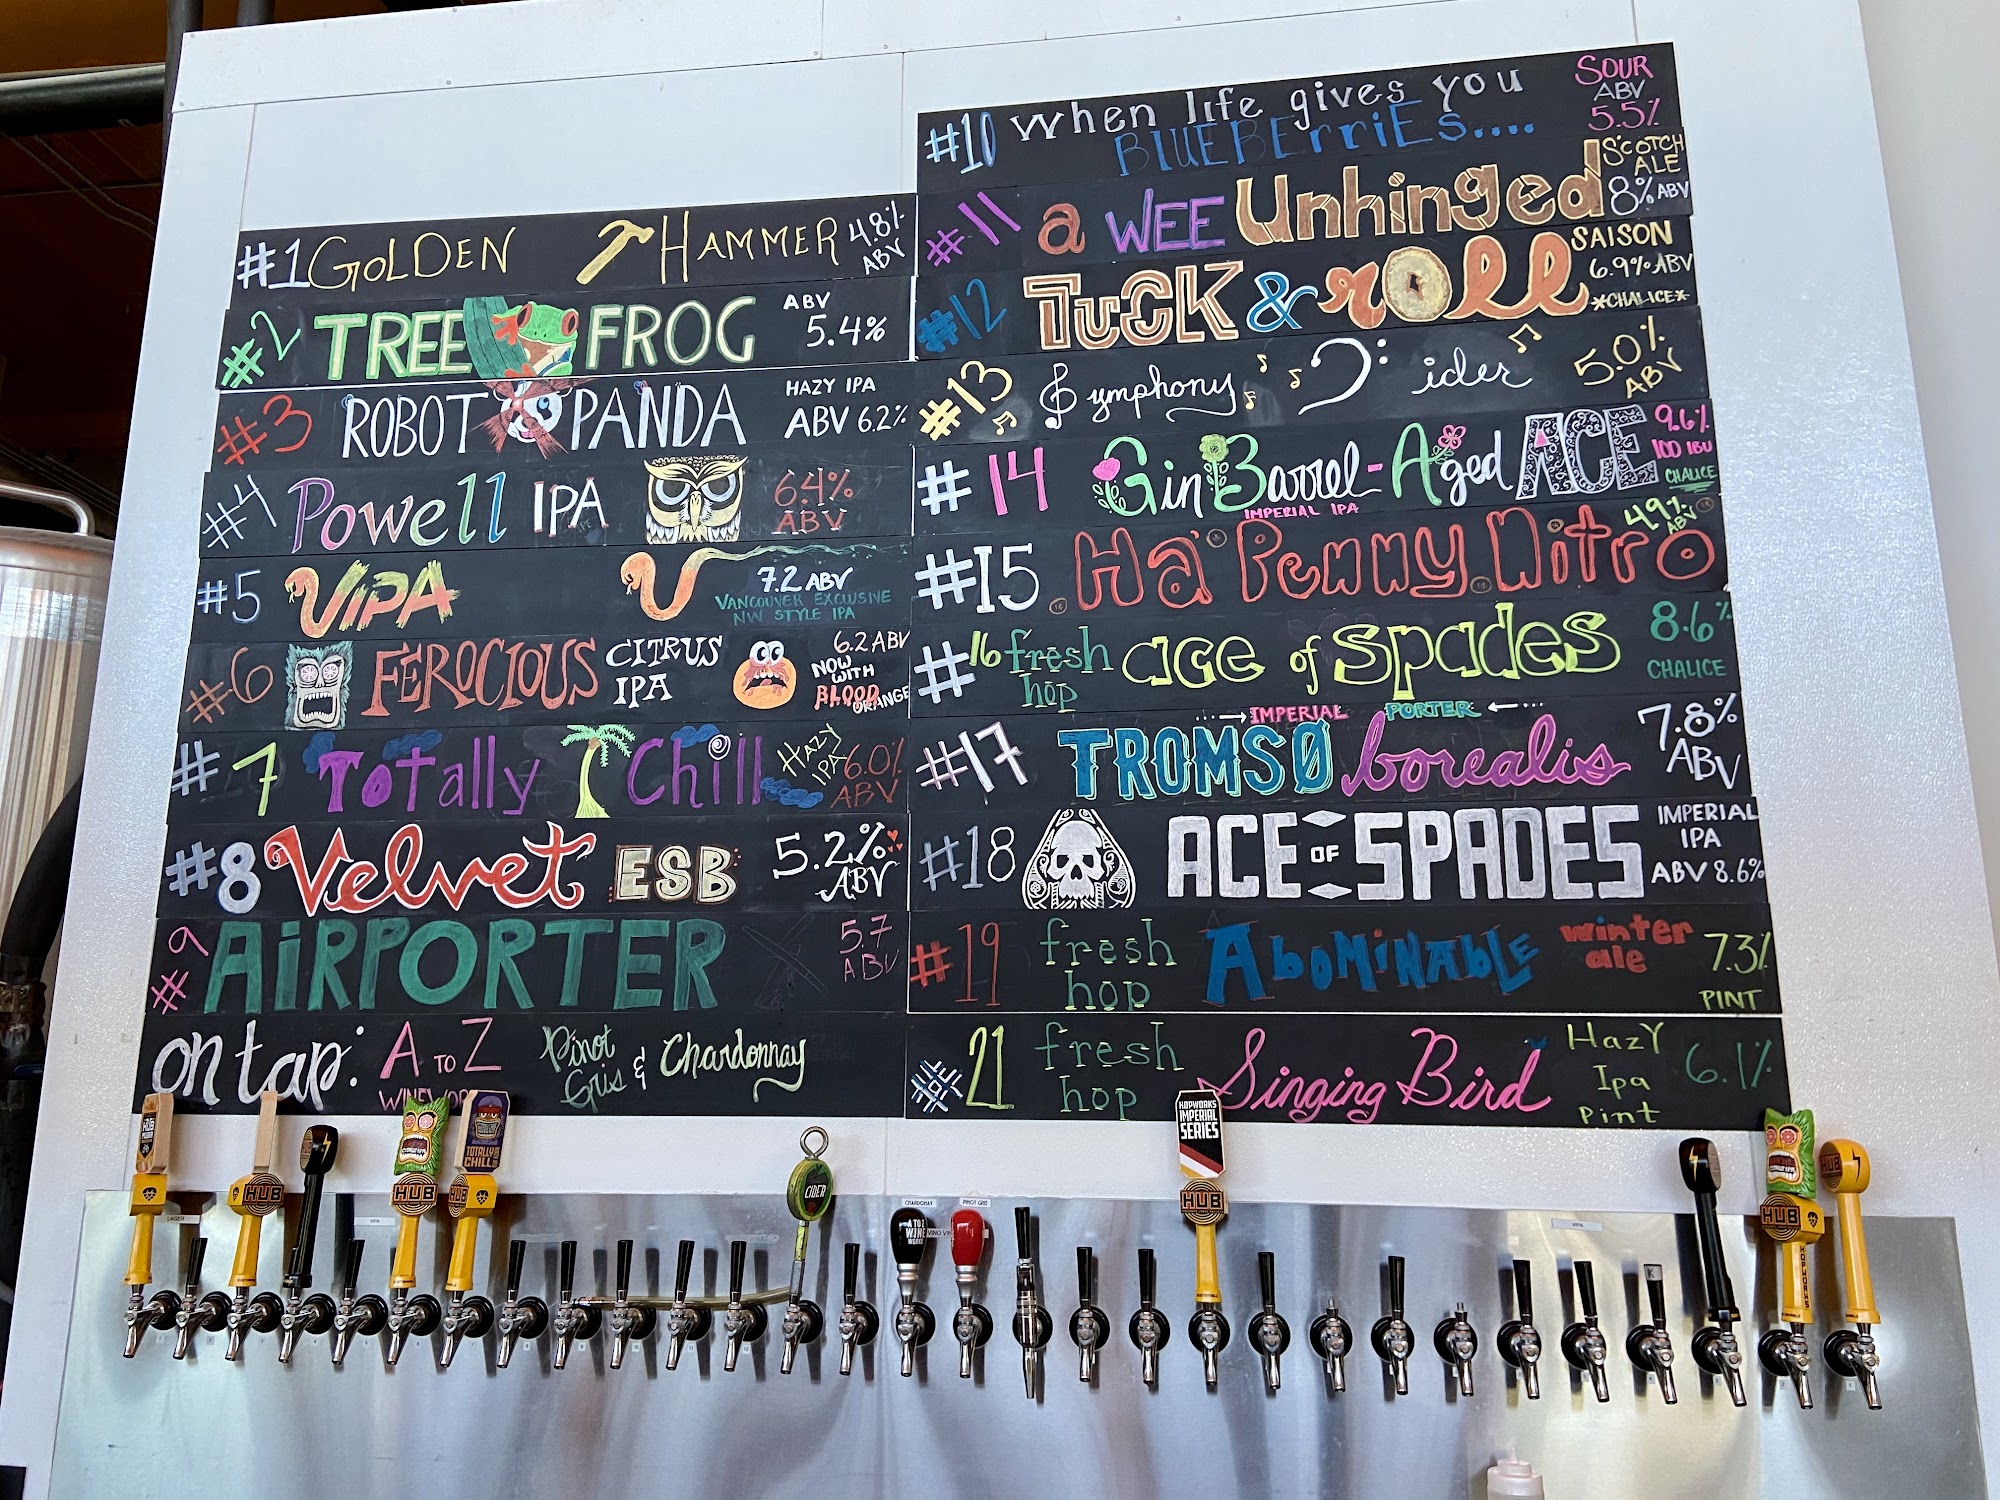 #1 GOLDEN HAMMER 4.8% ABV
#2 TREE FROG ABV 5.4%
#3 ROBOT PANDA HAZY IPA ABV 6.2%
#4 Powell IPA 6.4% ABV
#5 VIPA 7.2 ABV
VANCOUVER EXCLUSIVE
NW STYLE IPA
#6 FEROCIOUS CITRUS IPA 6.2 ABV
NOW WITH BLOOD ORANGE
#7 Totally Chill HAZY IPA 6.0% ABV
#8 Velvet ESB 5.2% ABV
#9 AIRPORTER 5.7 ABV
on tap: A TO Z Pinot Gris & Chardonnay
#10 When life gives you BLUEBErriEs.... SOUR ABV 5.5%
#11 a WEE Unhinged SCOTCH ALE 8% ABV
#12 TUCK & roll SAISON 6.9% ABV
*CHALICE*
#13 Symphony Cider 5.0% ABV
#14 Gin Barrel-Aged ACE 9.6%
IMPERIAL IPA 100 IBU
CHALICE
#15 Ha'Penny Nitro 4.9% ABV
#16 fresh hop ace of spades 8.6%
CHALICE
IMPERIAL PORTER
#17 TROMSØ borealis 7.8% ABV
#18 ACE OF SPADES IMPERIAL IPA
ABV 8.6%
#19 fresh hop ABOMINABLE winter ale 7.3%
PINT
#21 fresh hop Singing Bird Hazy Ipa Pint 6.1%
HUB
HUB
TOTALLY CHILL
HUB
HUB
CIDER
CHARDONAY
PINOT GRIS
A TO Z
WINE
WORKS
HOPWORKS
IMPERIAL
SERIES
HUB
HUB
HOPWORKS
HUB
LAGER